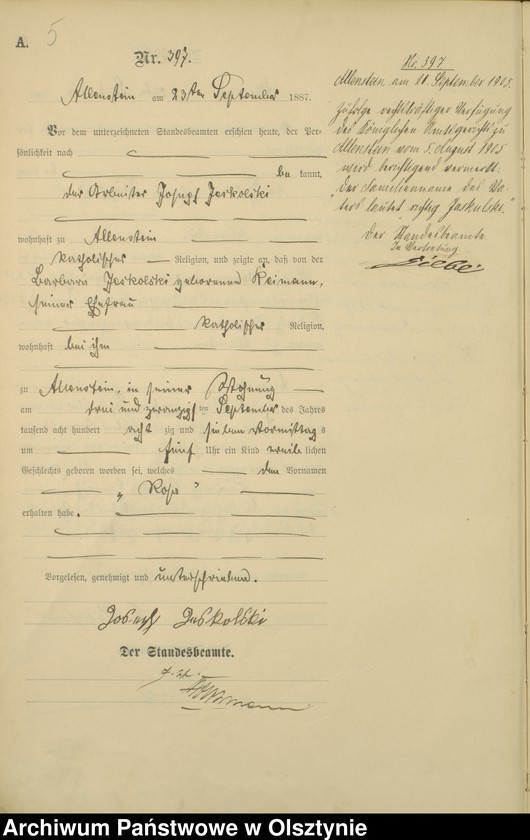 A.
5
Nr. 397.
Allenstein am 23ten September 1887.
Vor dem unterzeichneten Standesbeamten erschien heute, der Per-
sönlichkeit nach
be kannt,
der Arbeiter Joseph Jeskolski
wohnhaft zu Allenstein
katholischer Religion, und zeigte an, daß von der
Barbara Jeskolski geborenen Reimann,
seiner Ehefrau
katholischer Religion,
wohnhaft bei ihm
zu Allenstein, in seiner Wohnung
am drei und zwanzigsten September des Jahres
tausend acht hundert acht zig und sieben Vormittags
um fünf Uhr ein Kind weiblichen
Geschlechts geboren worden sei, welches den Vornamen
„Rosa"
erhalten habe.
Vorgelesen, genehmigt und unterschrieben.
Joseph Jeskolski
Der Standesbeamte.
Nr. 397
Allenstein, am 11. September 1905.
Zufolge rechtskräftiger Verfügung
des Königlichen Amtsgerichts zu
Allenstein vom 5. August 1905
wird berichtigend vermerkt:
"Der Familienname des Va-
ters lautet richtig Jaskulski."
Der Standesbeamte
In Vertretung
Archiwum Państwowe w Olsztynie